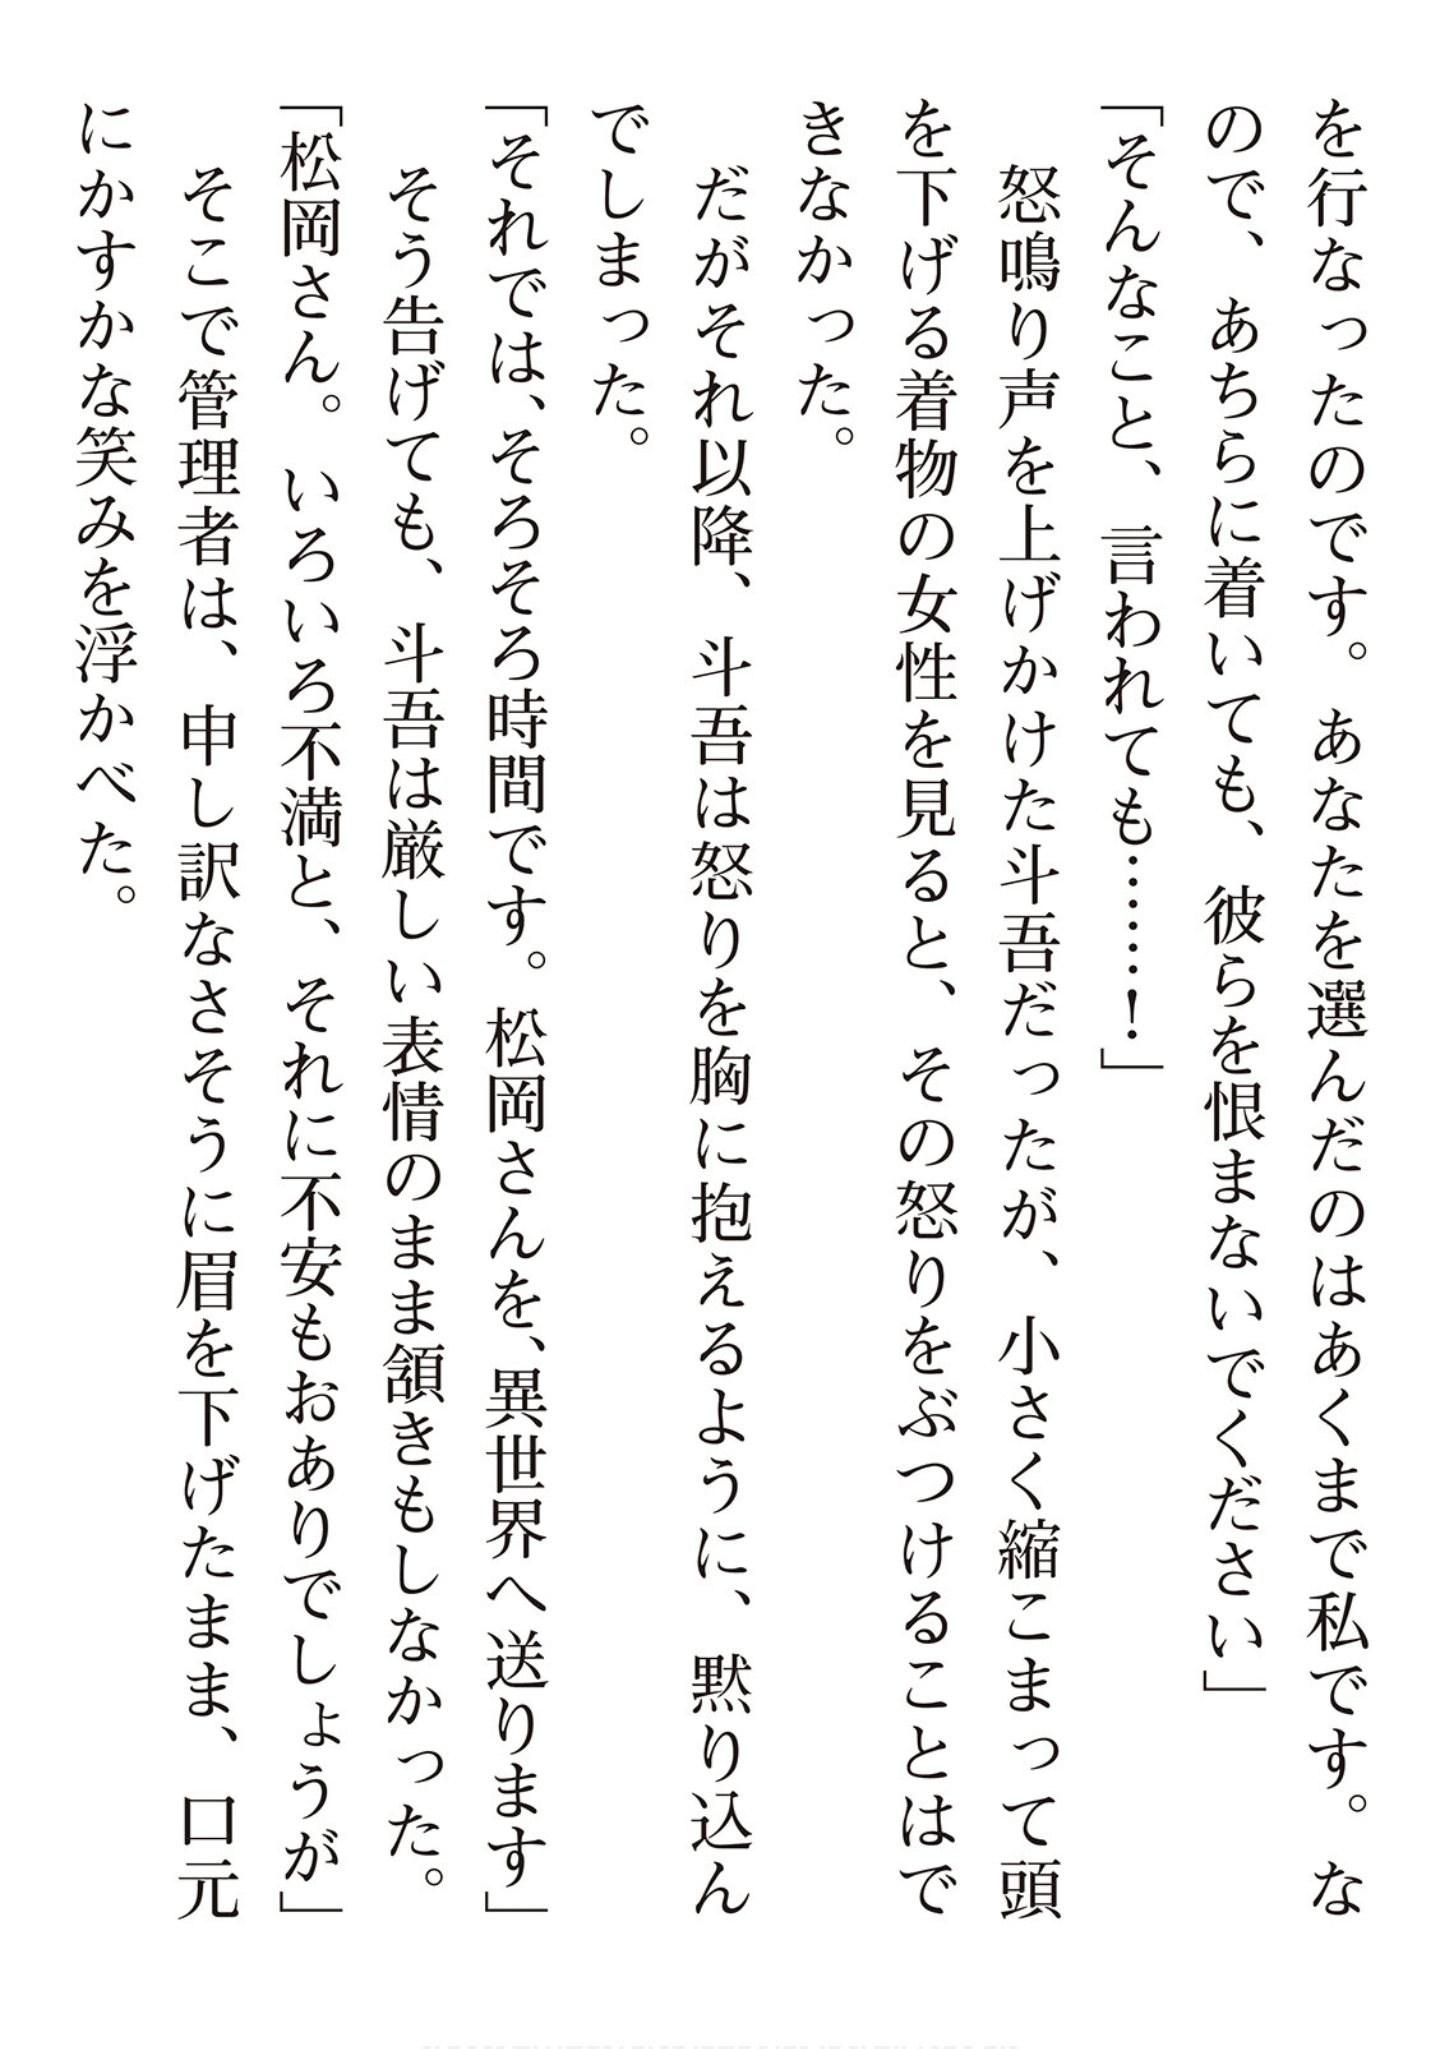 を行なったのです。あなたを選んだのはあくまで私です。な
ので、あちらに着いても、彼らを恨まないでください」
「そんなこと、言われても……！」
　怒鳴り声を上げかけた斗吾だったが、小さく縮こまって頭
を下げる着物の女性を見ると、その怒りをぶつけることはで
きなかった。
　だがそれ以降、斗吾は怒りを胸に抱えるように、黙り込ん
でしまった。
「それでは、そろそろ時間です。松岡さんを、異世界へ送ります」
　そう告げても、斗吾は厳しい表情のまま頷きもしなかった。
「松岡さん。いろいろ不満と、それに不安もおありでしょうが」
　そこで管理者は、申し訳なさそうに眉を下げたまま、口元
にかすかな笑みを浮かべた。